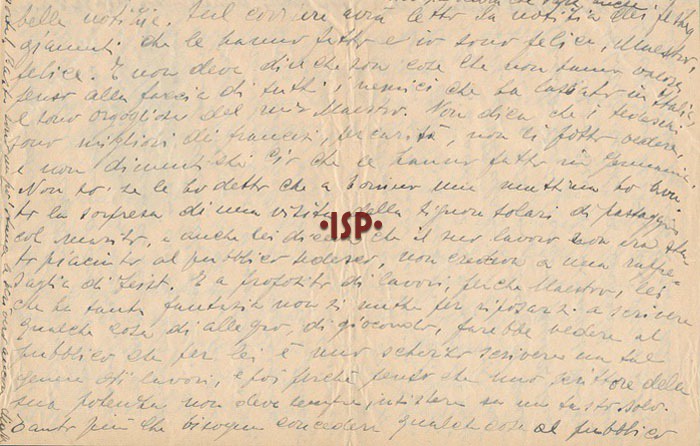 bella notizia. Sul corriere avrà letto la notizia dei festeg
giamenti che le hanno fatto e io sono felice, Maestro,
felice. E non deve dire che son cose che non hanno valore
penso alla faccia di tutti i nemici che ha lasciato in Italia,
e sono orgogliosa del mio Maestro. Non dica che i tedeschi
sono migliori dei francesi, per carità, non li posso vedere,
e non dimentichi ciò che le hanno fatto in Germania
Non so se le ho detto che a Torino una mattina ho avu
to la sorpresa di una visita della signora Solari di passaggio
col marito, e anche lei che il suo lavoro non era sta
to piaciuto al pubblico tedesco, non a una rappre
saglia di Feist. E a proposito di lavori, perché Maestro, lei
che ha tanta fantasia non si mette per riposarsi a scrivere
qualche cosa di allegro, di giocondo, farebbe vedere al
pubblico che per lei è uno scherzo scrivere un tal
genere di lavori, e poi perché penso che uno scrittore della
sua potenza non deve insistere su un tasto solo.
Tanto più che bisogna concedere qualche cosa al pubblico
·ISP·